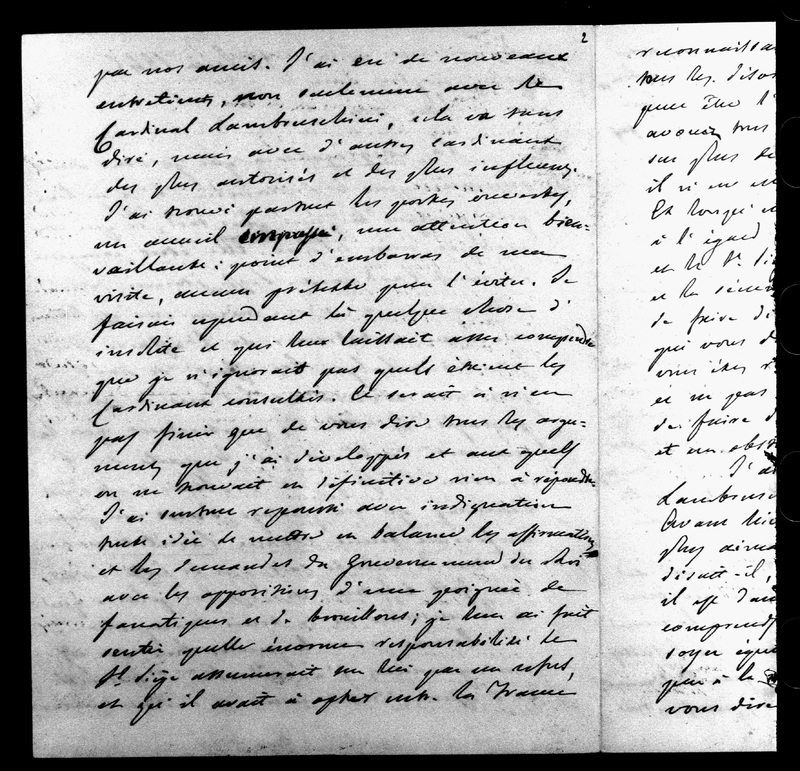 2
par nos amis. J'ai eu de nouveaux
entretiens, non seulement avec le
Cardinal Lambruschini, cela va sans
dire, mais avec d'autres Cardinaux
des plus autorisés et des plus influens.
J'ai trouvé partout les portes ouvertes,
un accueil empressé, une attention bien-
vaillante : point d'embarras de ma
visite, aucun prétexte pour l'éviter. Je
faisais cependant là quelque chose d'
insolite et qui leur laissait assez comprendre
que je n'ignorait pas quels étaient les
Cardinaux consultés. Ce serait à n'en
pas finir que de vous dire tous les argu-
ments que j'ai développés et aux quels
on ne trouvait en définitive rien à répondre.
J'ai surtout repoussé avec indignation
toute idée de mettre en balance les affirmations
et les demandes du Gouvernement du Roi
avec les oppositions d'une poignée de
fanatiques et de brouillons; je leur ai fait
sentir quelle énorme responsabilité le
St. Siège assumerait sur lui par un refus,
et qu'il avait à opter entre la France
reconnaissa
tous les
pour être l'
avouez tous
sur plus de
il n'en es
Et lorsqu'
à l'égard
et le St. Si
et la
de faire
qui vous d
vous êtes
et ne pas
de faire d
et un
J'ai
Lambrusc
Avant hie
plus
disait-il,
il est d'au
comprend
soyez
peu à la
vous dire